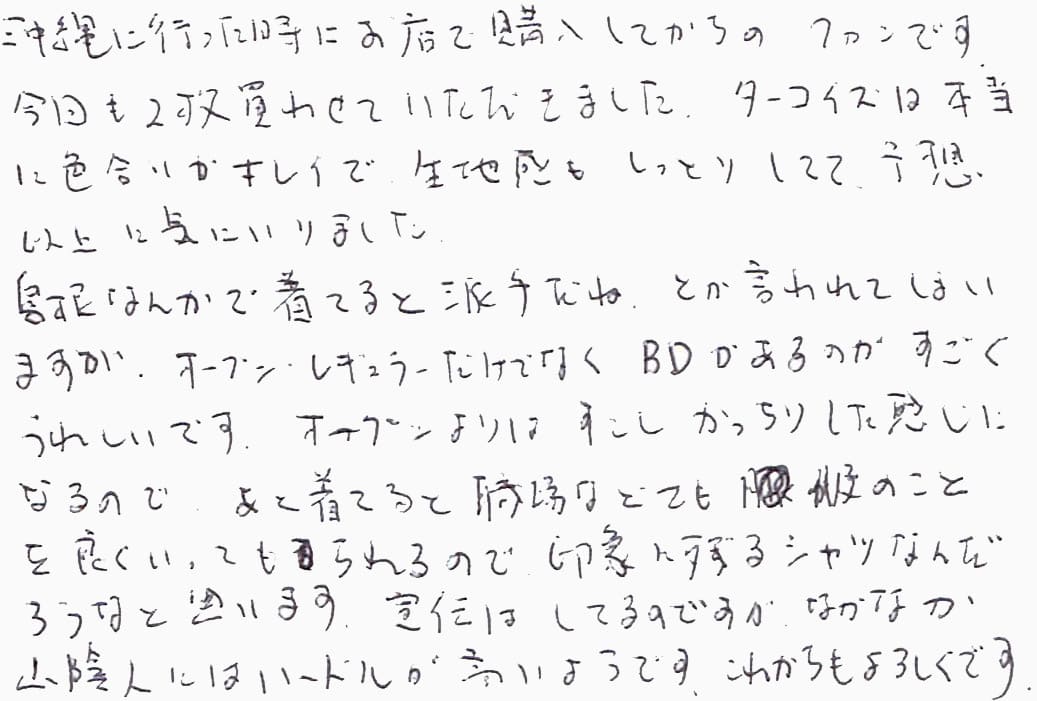 沖縄に行った時にお店で購入してからの ファンです.
今回も2枚買わせていただきました. ターコイズは本当
に色合いがキレイで 生地感も しっとりしてて、予想
以上に気にいりました.
島根なんかで着てると派手だね. とか言われてしまい
ますが. オープン・レギュラーだけでなく BDがあるのが すごく
うれしいです. オープンよりは すこし かっちりした感じに
なるので. あと着てると職場などでも 服のこと
を良くいってもらえるので 印象に残るシャツなんだ
ろうなと思います. 宣伝は してるのですが なかなか
山陰人にはハードルが 高いようです. これからもよろしくです.